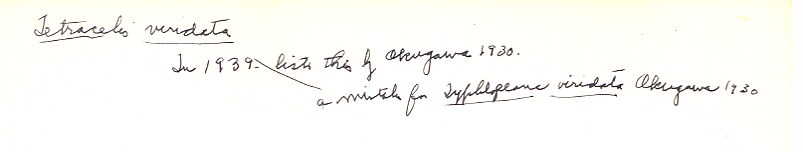 Tetracelis viridata
In 1939 - lists this by Okugawa 1930.
a mistake for Typhloplana viridata Okugawa 1930